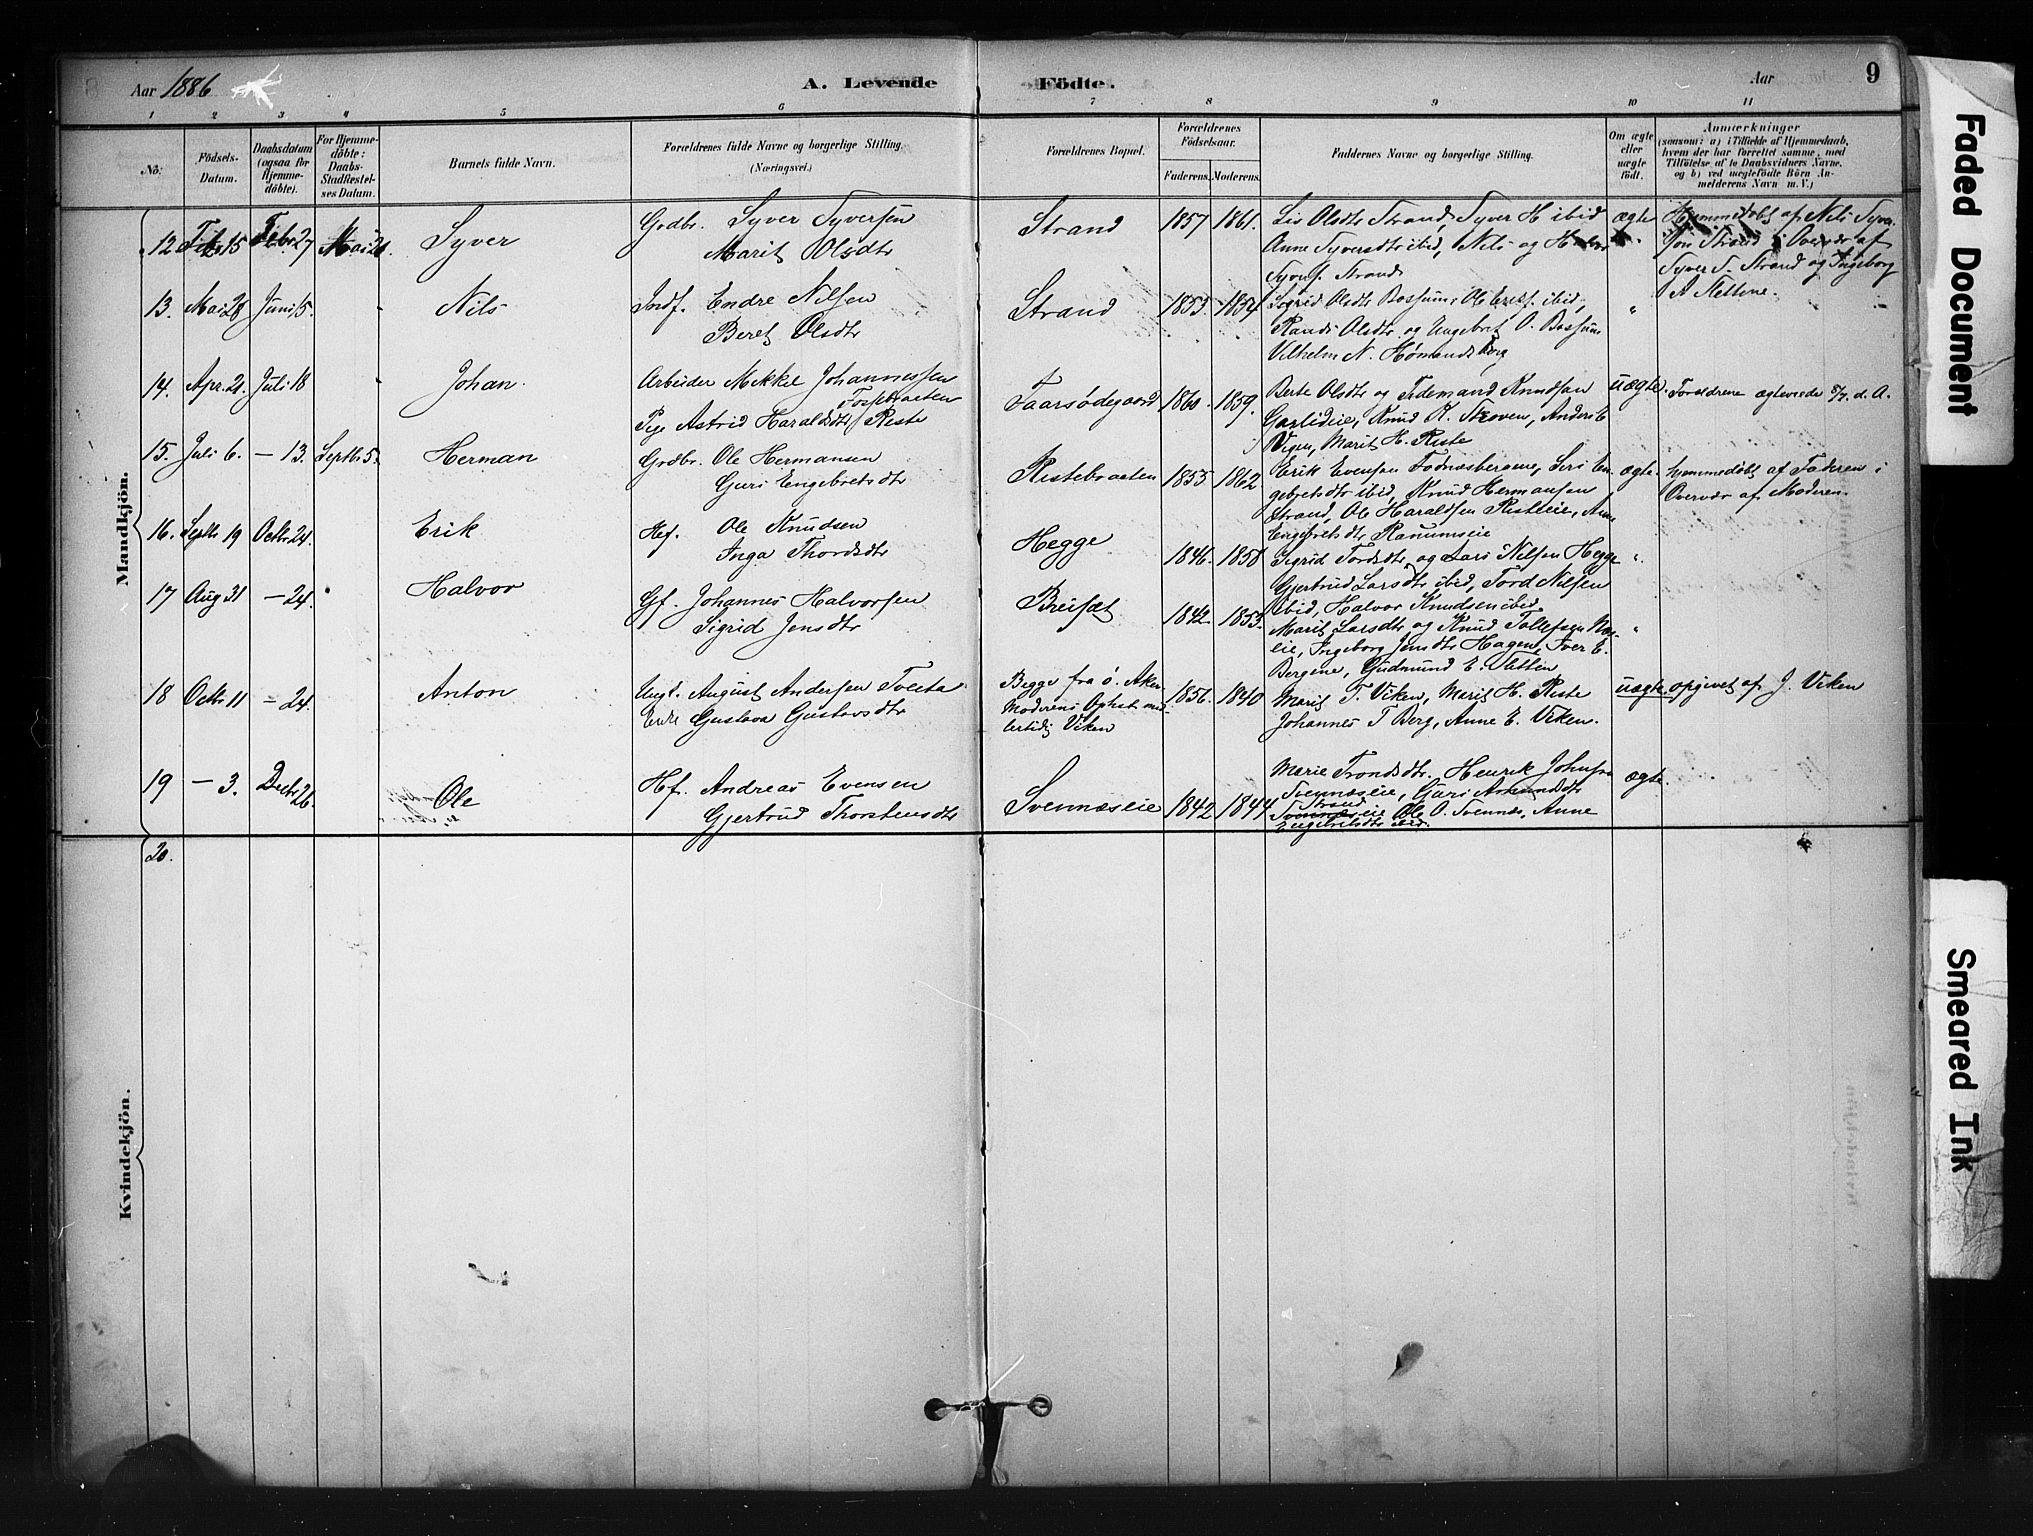 Aar 1886 A. Levende Födte. Aar 9
1 2 3 4 5 6 7 8 9 10 11
No: Födsels-Datum. Daabsdatum (ogsaa for Hjemme-döbte). For Hjemme-döbte: Daabs-Stadfæstel-ses Datum. Barnets fulde Navn. Forældrenes fulde Navne og borgerlige Stilling. (Næringsvei.) Forældrenes Bopæl. Forældrenes Födselsaar. Faderens. Moderens. Faddernes Navne og borgerlige Stilling. Om ægte eller uægte födt. Anmærkninger (saasom: a) i Tilfælde af Hjemmedaab, hvem der har forrettet samme, med Tilföielse af to Daabsvidners Navne, og b) ved uægtefödte Börn Anmelderens Navn m. V.)
Mandkjön.
12 Febr 15 Febr 27 Mai 21. Syver Grdbr. Syver Syversen Strand 1857 1861. Olsdtr Strand, Syver H ibid ægte Hjemmedøbt af Nils Syver-
Marit Olsdtr Anne Syversdtr ibid, Nils og Halvor sen Strand i Overvær af
Syvers. Strand Syver S. Strand og Ingeborg
A Slettene.
13. Mai 28 Juni 15. Nils Indf. Endre Nilsen Strand 1853. 1854 Sigrid Olsdtr Bossum, Ole Erikss. ibid, "
Beret Olsdtr Randi Olsdtr og Engebret O. Bossum
Vilhelm N. Hømandsberg
14. Apr. 21. Juli 18 Johan. Arbeider Mikkel Johannessen Faarsødegaard 1860. 1859. Berte Olsdtr og Tidemand Knudsen uægte. Forældrene ægteviede d. A.
Fossebraaten
Pige Astrid Haraldsdtr Riste Garlideie, Knud K. Skoven, Anders E
Vigen, Marit H. Riste
15. Juli 6. — 13. Septbr 5. Herman Grdbr. Ole Hermansen Ristebraaten 1855 1862 Erik Evensen Fodnæsbergene, Siri En- ægte. hjemmedøbt af Faderen i
Guri Engebretsdtr gebretsdtr ibid, Knud Hermansen Overvær af Moderen.
Strand, Ole Haraldsen Risteeie, Anne
Engebretsdtr Ranumseie
16. Septbr 19 Octbr 24. Erik Hf. Ole Knudsen Hegge 1846. 1858 Sigrid Tordsdtr og Lars Nilsen Hegge "
Inga Thordsdtr Gjertrud Larsdtr ibid, Tord Nilsen
ibid, Halvor Knudsen ibid
17 Aug 31 — 24. Halvor Gf. Johannes Halvorsen Breiset 1842. 1853. Marit Larsdtr og Knud Tollefsen "
Sigrid Jensdtr eie, Ingeborg Jensdtr Hagen, Iver E.
Bergene, Gudmund E. Sletten
18 Octbr 11 — 24. Anton Ungk. August Andersen Tveeta Begge fra Ø. Aker 1856. 1840 Marit T. Viken, Marit H. Riste uægte opgivet af J. Viken
Enke Gustava Gustavsdtr Moderens Ophst mid- Johannes T Berg, Anne E. Viken.
lertidig Viken
19 — 3. Decbr 26. Ole Hf. Andreas Evensen Svennæseie 1842 1844 Marie Trondsdtr. Henrik Johnsen ægte.
Gjertrud Thorstensdtr Svennæseie, Guri Amundsdtr
Strand
Svennæseie Ole O. Svennæs, Anne
Engebretsdtr ibid.
20.
Kvindekjön.
Faded Document
Smeared Ink